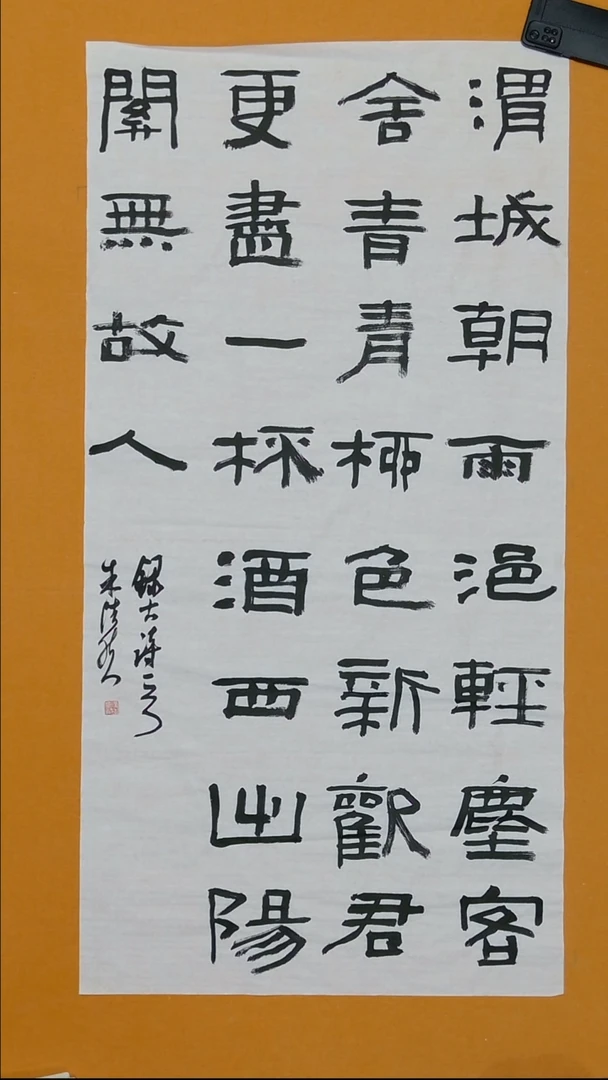 渭城朝雨浥輕塵客
舍青青柳色新勸君
更盡一杯酒西出陽
關無故人
錄古詩一首
朱